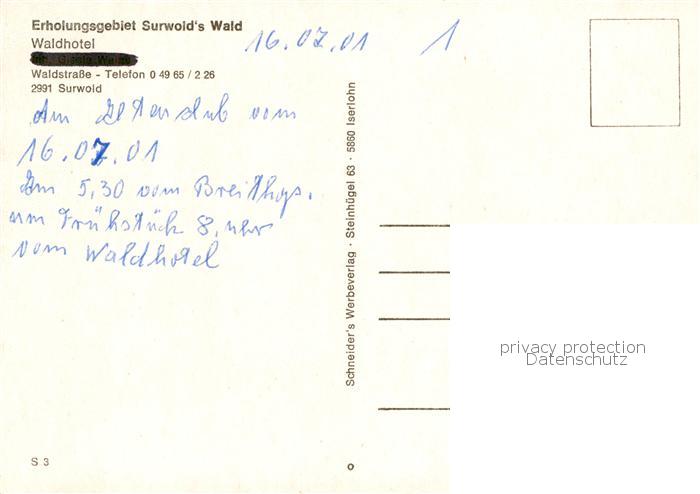 Erholungsgebiet Surwold's Wald
Waldhotel
Waldstraße - Telefon 0 49 65 / 2 26
2991 Surwold
16.07.01 1
Am vom
16.07.01
5,30 vom
um Frühstück 8, uhr
vom Waldhotel
Schneider's Werbeverlag · Steinhügel 63 · 5860 Iserlohn
privacy protection
Datenschutz
S 3